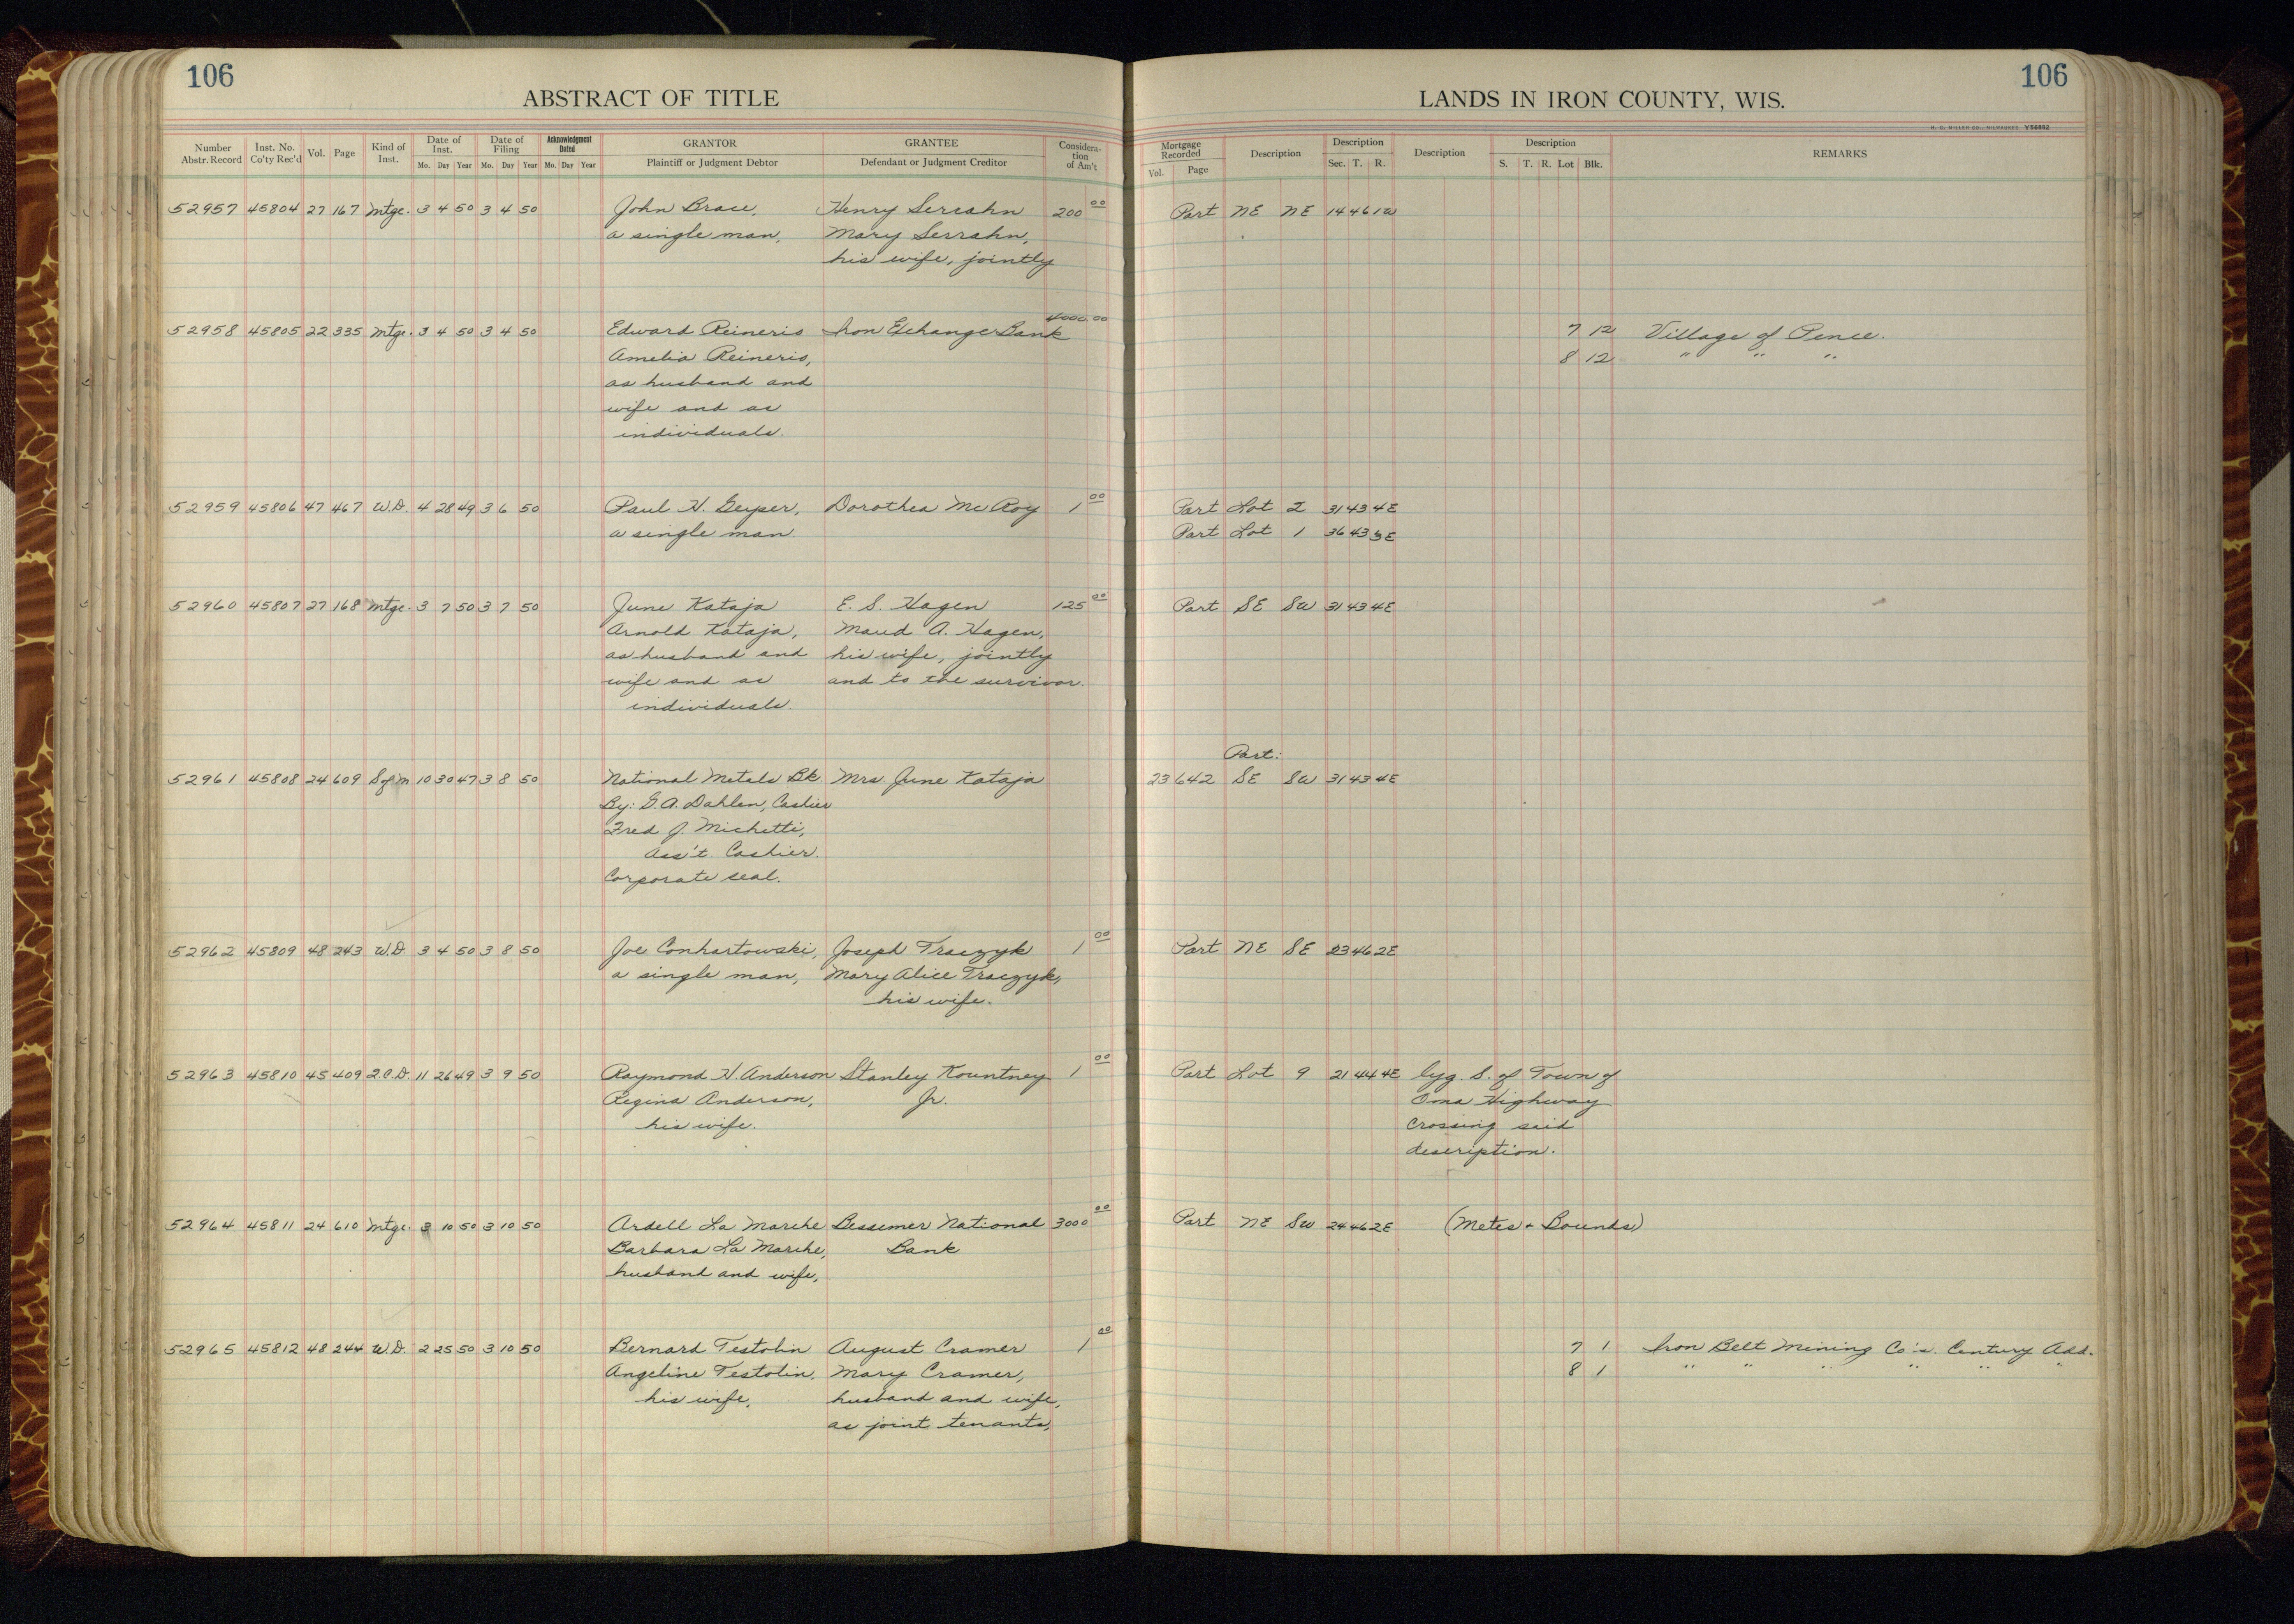 106
106
ABSTRACT OF TITLE
LANDS IN IRON COUNTY, WIS.
H. C. MILLER CO., MILWAUKEE V56852
Number Abstr. Record Inst. No. Co'ty Rec'd Vol. Page Kind of Inst. Date of Inst. Mo. Day Year Date of Filing Mo. Day Year Acknowledgment Dated Mo. Day Year GRANTOR Plaintiff or Judgment Debtor GRANTEE Defendant or Judgment Creditor Considera-tion of Am't Mortgage Recorded Vol. Page Description Description Sec. T. R. Description Description S. T. R. Lot Blk. REMARKS
52957 45804 27 167 Mtge. 3 4 50 3 4 50 John Brace, Henry Serrahn 200 00 Part NE NE 14 46 1W
a single man, Mary Serrahn,
his wife, jointly
52958 45805 22 335 Mtge. 3 4 50 3 4 50 Edward Reineris Iron Exchange Bank 4000.00 7 12 Village of Pence.
Amelia Reineris, 8 12 " " "
as husband and
wife and as
individuals.
52959 45806 47 467 W.D. 4 28 49 3 6 50 Paul H. Geyser, Dorothea McRoy 1 00 Part Lot 2 31 43 4E
a single man. Part Lot 1 36 43 3E
52960 45807 27 168 Mtge. 3 7 50 3 7 50 June Kataja E. S. Hagen 125 00 Part SE SW 31 43 4E
Arnold Kataja, Maud A. Hagen,
as husband and his wife, jointly
wife and as and to the survivor.
individuals.
Part:
52961 45808 24 609 S of M 10 30 47 3 8 50 National Metals Bk. Mrs June Kataja 23 642 SE SW 31 43 4E
By: G.A. Dahlen, Cashier
Fred J. Michetti,
Ass't. Cashier.
Corporate seal.
52962 45809 48 243 W.D 3 4 50 3 8 50 Joe Conhartowski, Joseph Traczyk 1 00 Part NE SE 23 46 2E
a single man, Mary Alice Traczyk,
his wife.
52963 45810 45 409 Q.C.D. 11 26 49 3 9 50 Raymond H. Anderson Stanley Kountney 1 00 Part Lot 9 21 44 4E lyg. S. of Town of
Regina Anderson, Jr. Oma Highway
his wife. crossing said
description.
52964 45811 24 610 Mtge. 3 10 50 3 10 50 Ardell La Marche Bessemer National 3000 00 Part NE SW 24 46 2E (Metes + Bounds)
Barbara La Marche, Bank
husband and wife,
52965 45812 48 244 W.D. 2 25 50 3 10 50 Bernard Testolin August Cramer 1 00 7 1 Iron Belt Mining Co's. Century Add.
Angeline Testolin, Mary Cramer, 8 1 " " " " " "
his wife, husband and wife,
as joint tenants,